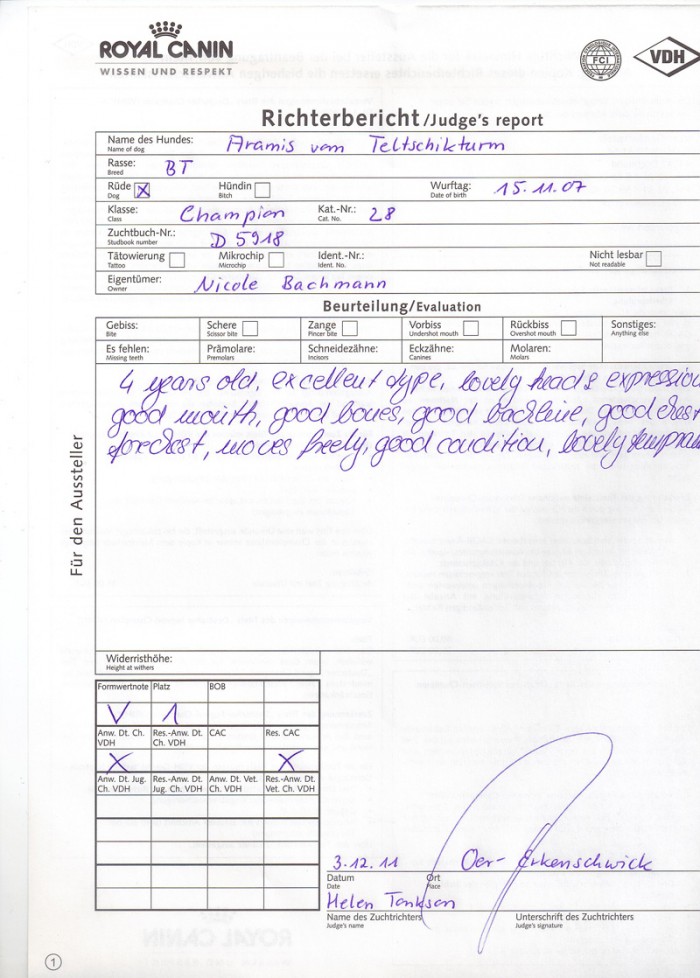 ROYAL CANIN
WISSEN UND RESPEKT
FCI
VDH
Richterbericht/Judge's report
Name des Hundes: Aramis vom Teltschikturm
Name of dog
Rasse: BT
Breed
Rüde X Hündin Wurftag: 15.11.07
Dog Bitch Date of birth
Klasse: Champion Kat.-Nr.: 28
Class Cat. No.
Zuchtbuch-Nr.: D 5918
Studbook number
Tätowierung Mikrochip Ident.-Nr.: Nicht lesbar
Tattoo Microchip Ident. No. Not readable
Eigentümer: Nicole Bachmann
Owner
Beurteilung/Evaluation
Gebiss: Schere Zange Vorbiss Rückbiss Sonstiges:
Bite Scissor bite Pincer bite Undershot mouth Overshot mouth Anything else
Es fehlen: Prämolare: Schneidezähne: Eckzähne: Molaren:
Missing teeth Premolars Incisors Canines Molars
4 years old, excellent type, lovely head & expression
good mouth, good bones, good backline, good chest
forechest, moves freely, good condition, lovely
Für den Aussteller
Widerristhöhe:
Height at withers
Formwertnote Platz BOB
V 1
Anw. Dt. Ch. VDH Res.-Anw. Dt. Ch. VDH CAC Res. CAC
X X
Anw. Dt. Jug. Ch. VDH Res.-Anw. Dt. Jug. Ch. VDH Anw. Dt. Vet. Ch. VDH Res.-Anw. Dt. Vet. Ch. VDH
3.12.11 Oer-Erkenschwick
Datum Ort
Date Place
Helen Tonkson
Name des Zuchtrichters Unterschrift des Zuchtrichters
Judge's name Judge's signature
1